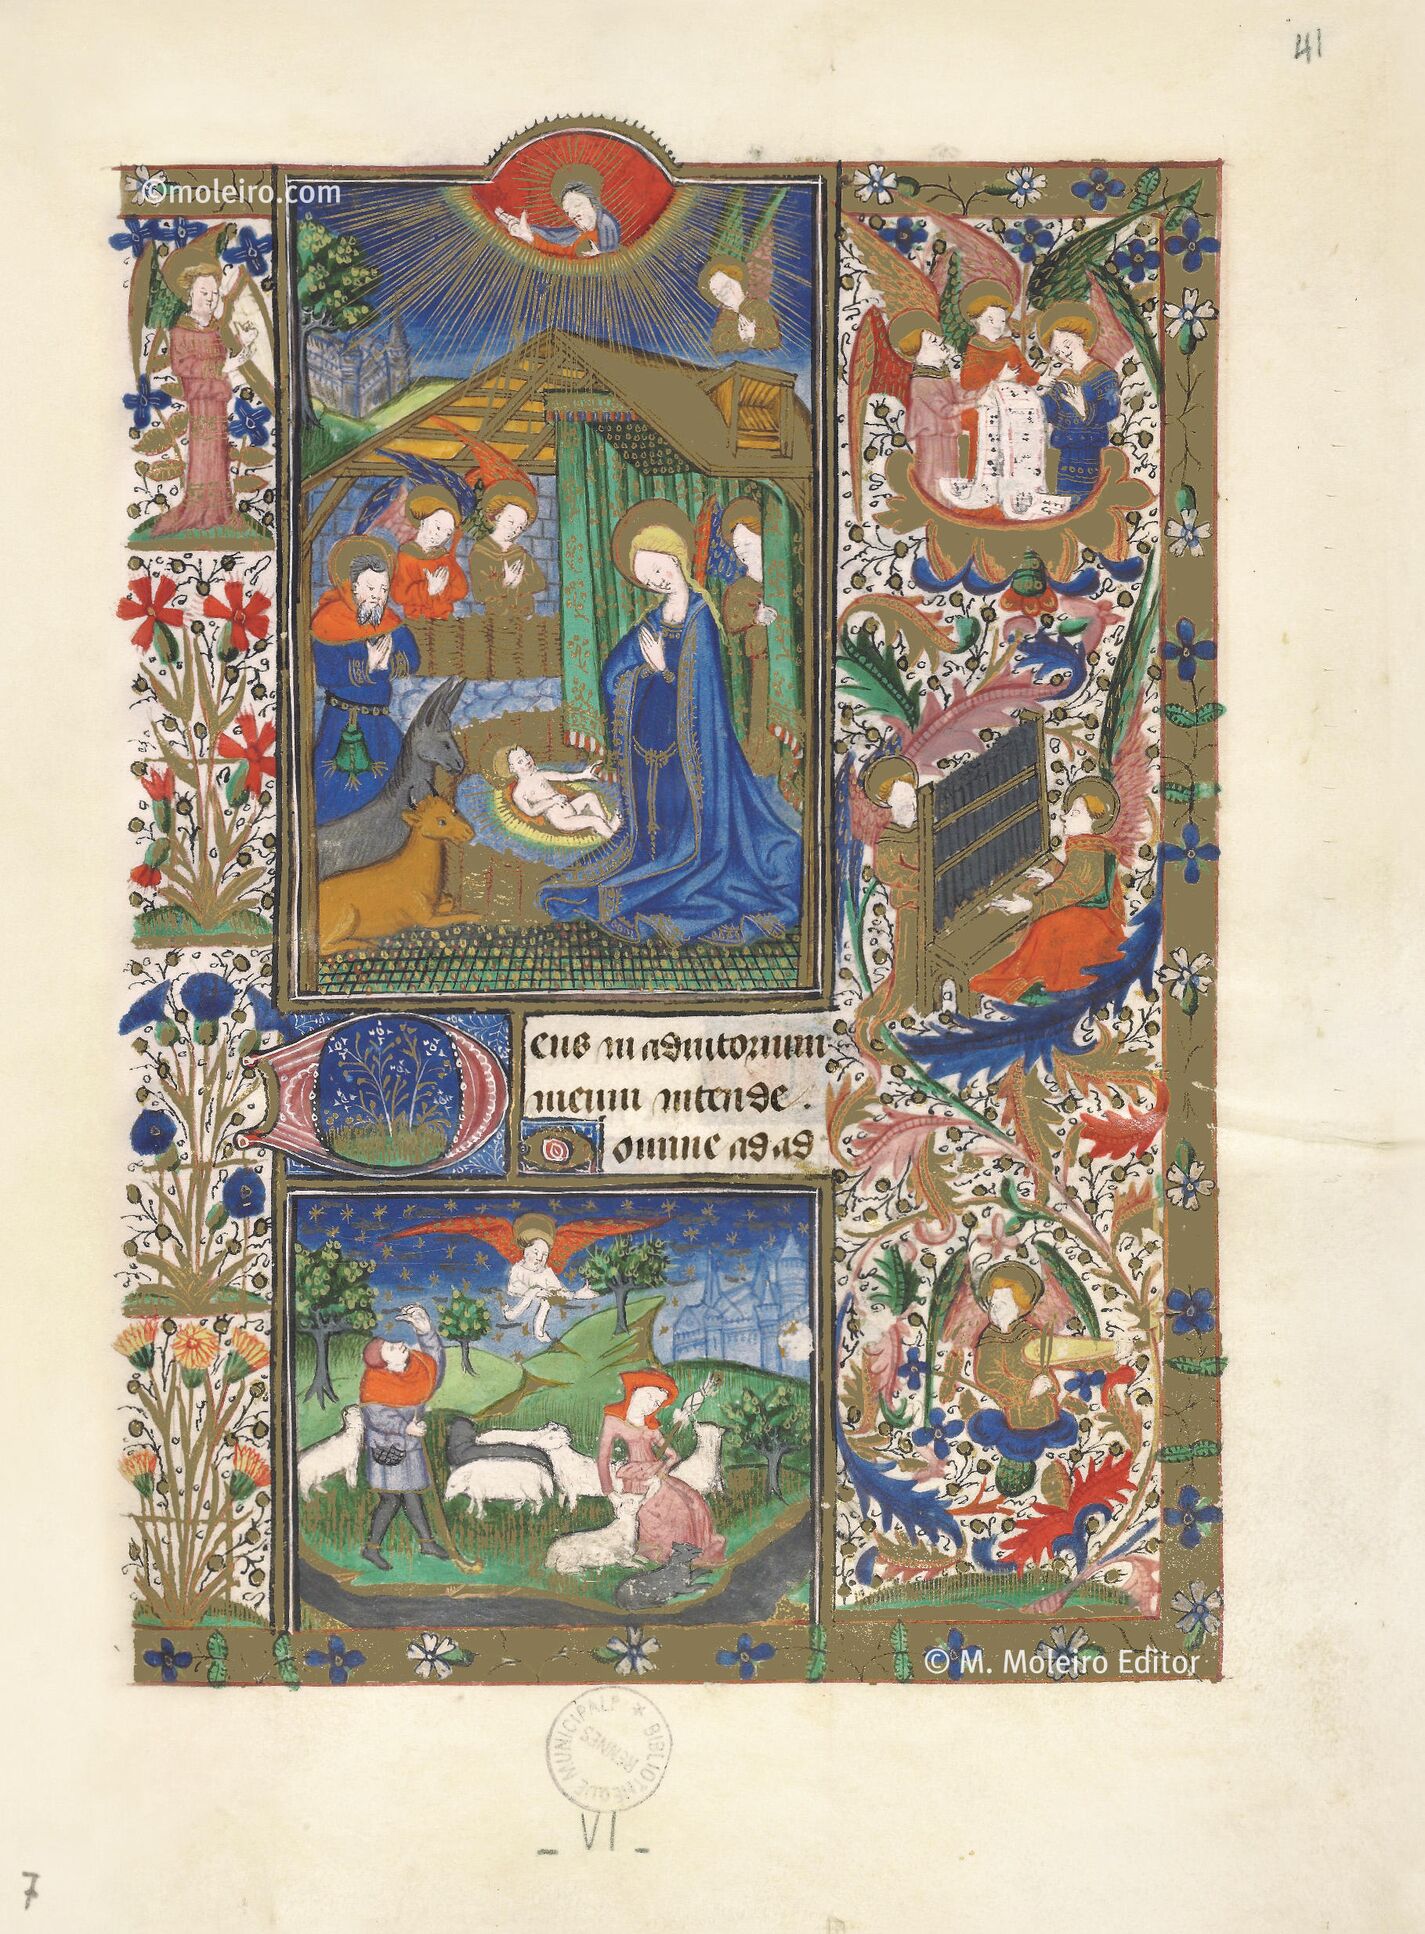 41
©moleiro.com
Deus in adiutorium
meum intende .
Domine ad ad
© M. Moleiro Editor
BIBLIOTHEQUE MUNICIPALE *
RENNES
_ VI _
7